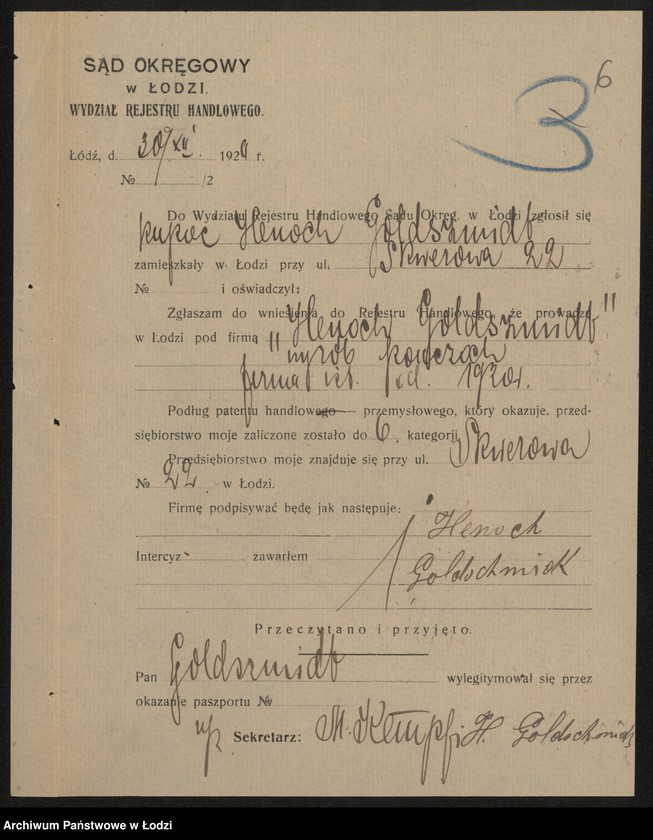 6
3
SĄD OKRĘGOWY
w ŁODZI.
WYDZIAŁ REJESTRU HANDLOWEGO.
Łódź, d. 30/XII 1929 r.
№ /2
Do Wydziału Rejestru Handlowego Sądu Okręg. w Łodzi zgłosił się
kupiec Henoch Goldszmidt
zamieszkały w Łodzi przy ul. Skwerowa 22
№ i oświadczył:
Zgłaszam do wniesienia do Rejestru Handlowego, że prowadzę
w Łodzi pod firmą "Henoch Goldszmidt"
wyrób
firma ist. od.
Podług patentu handlowego — przemysłowego, który okazuje, przed-
siębiorstwo moje zaliczone zostało do 6, kategorji
Przedsiębiorstwo moje znajduje się przy ul. Skwerowa
№ 22 w Łodzi.
Firmę podpisywać będę jak następuje:
Henoch
Intercyz zawarłem
Goldschmidt
Przeczytano i przyjęto.
Pan Goldszmidt wylegitymował się przez
okazanie paszportu №
Sekretarz: M. Kempfi H. Goldschmidt
Archiwum Państwowe w Łodzi